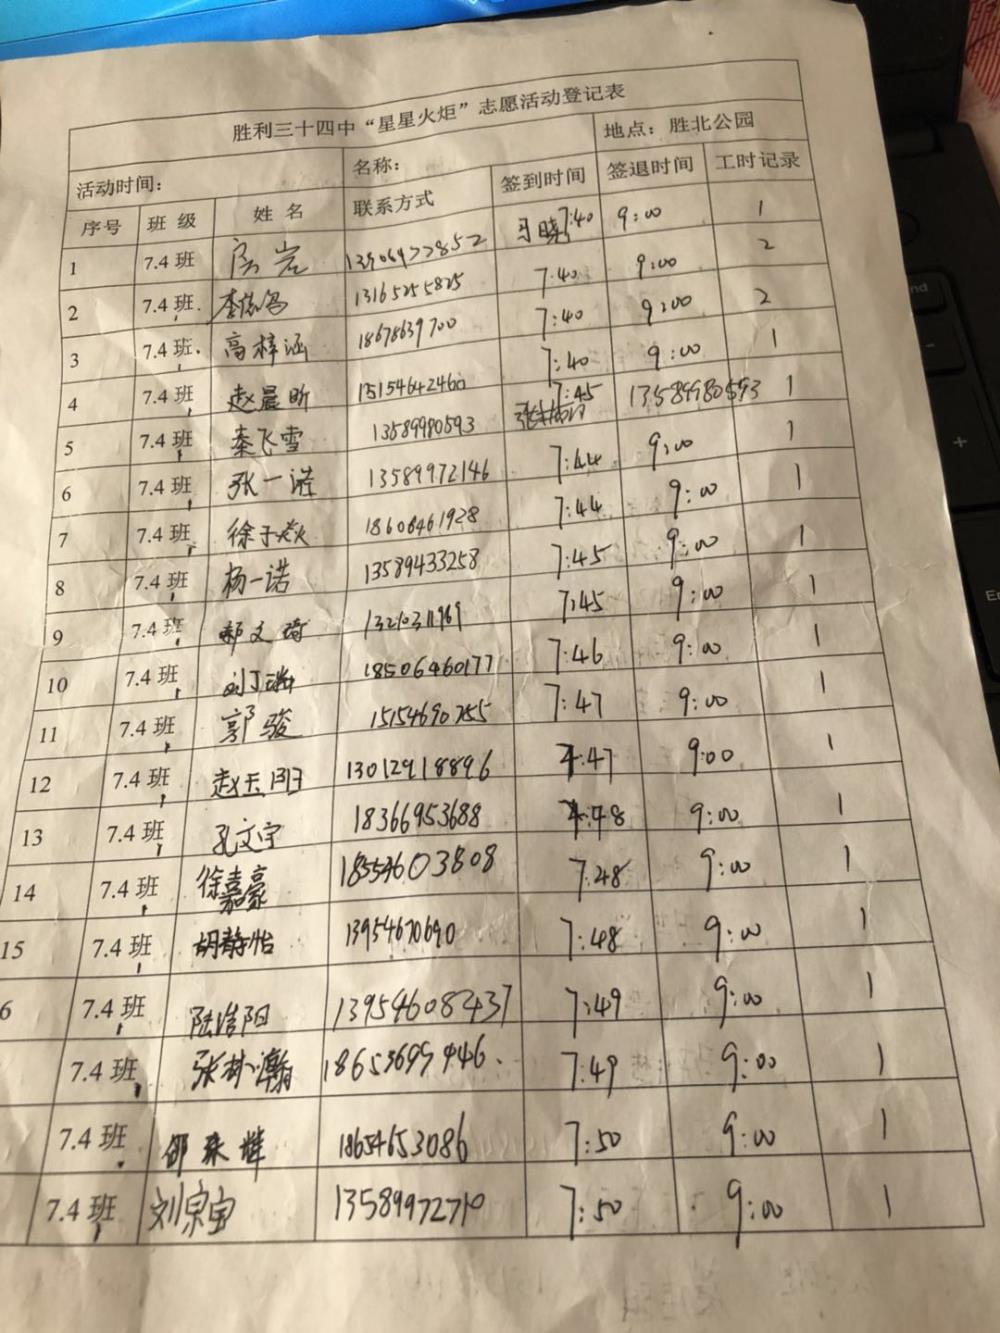 胜利三十四中“星星火炬”志愿活动登记表
活动时间: 名称: 地点: 胜北公园
序号 班 级 姓 名 联系方式 签到时间 签退时间 工时记录
1 7.4 班 7:40 9:00 1
2 7.4 班 13165255825 7:40 9:00 2
3 7.4 班 高梓涵 18678639700 7:40 9:00 2
4 7.4 班 赵晨昕 15154642460 7:40 9:00 1
5 7.4 班 秦飞雪 13589980593 7:45 13589980593 1
6 7.4 班 张一诺 13589972146 7:44 9:00 1
7 7.4 班 徐子焱 18608461928 7:44 9:00 1
8 7.4 班 杨一诺 13589433258 7:45 9:00 1
9 7.4 班 郝文琦 7:45 9:00 1
10 7.4 班 18506460177 7:46 9:00 1
11 7.4 班 郭骏 15154690255 7:47 9:00 1
12 7.4 班 赵天玥 13012918896 7:47 9:00 1
13 7.4 班 孔文宇 18366953688 7:48 9:00 1
14 7.4 班 徐嘉豪 18554603808 7:48 9:00 1
15 7.4 班 胡静怡 13954670690 7:48 9:00 1
6 7.4 班 陆浩阳 139546082437 7:49 9:00 1
7.4 班 张林瀚 18653699446. 7:49 9:00 1
7.4 班 18654653086 7:50 9:00 1
7.4 班 刘宗宝 13589972710 7:50 9:00 1